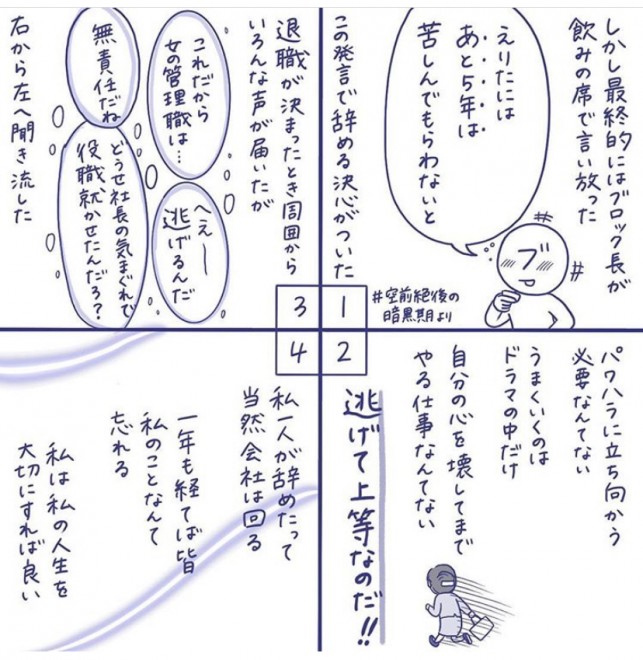 しかし最終的にはブロック長が
飲みの席で言い放った
えりたには
あと5年は
苦しんでもらわないと
ブ
#空前絶後の
暗黒期より
この発言で辞める決心がついた
1
パワハラに立ち向かう
必要なんてない
うまくいくのは
ドラマの中だけ
自分の心を壊してまで
やる仕事なんてない
逃げて上等なのだ!!
2
退職が決まったとき周囲から
いろんな声が届いたが
これだから
女の管理職は…
へぇー
逃げるんだ
無責任だね
どうせ社長の気まぐれで
役職就かせたんだろ?
右から左へ聞き流した
3
私一人が辞めたって
当然会社は回る
一年も経てば皆
私のことなんて
忘れる
私は私の人生を
大切にすれば良い
4